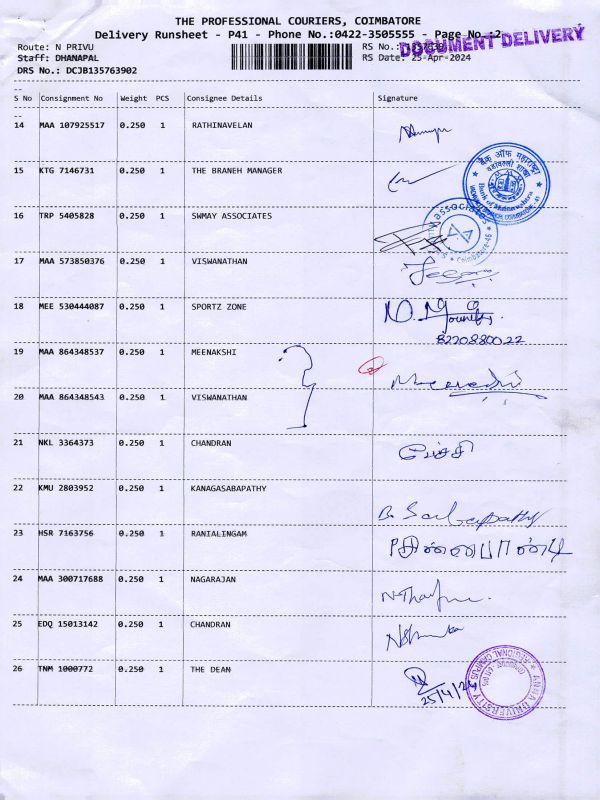 THE PROFESSIONAL COURIERS, COIMBATORE
Delivery Runsheet - P41 - Phone No.:0422-3505555 - Page No.:2
DOCUMENT DELIVERY
Route: N PRIVU
Staff: DHANAPAL
RS Date: 25-Apr-2024
DRS No.: DCJB135763902
S No Consignment No Weight PCS Consignee Details Signature
14 MAA 107925517 0.250 1 RATHINAVELAN
15 KTG 7146731 0.250 1 THE BRANEH MANAGER
बैंक ऑफ महाराष्ट्र
Bank of Maharashtra
16 TRP 5405828 0.250 1 SWMAY ASSOCIATES
17 MAA 573850376 0.250 1 VISWANATHAN
18 MEE 530444087 0.250 1 SPORTZ ZONE
8220880022
19 MAA 864348537 0.250 1 MEENAKSHI
20 MAA 864348543 0.250 1 VISWANATHAN
21 NKL 3364373 0.250 1 CHANDRAN
22 KMU 2803952 0.250 1 KANAGASABAPATHY
23 HSR 7163756 0.250 1 RANIALINGAM
24 MAA 300717688 0.250 1 NAGARAJAN
25 EDQ 15013142 0.250 1 CHANDRAN
26 TNM 1000772 0.250 1 THE DEAN
25/4/24
ANNA UNIVERSITY
REGIONAL CAMPUS